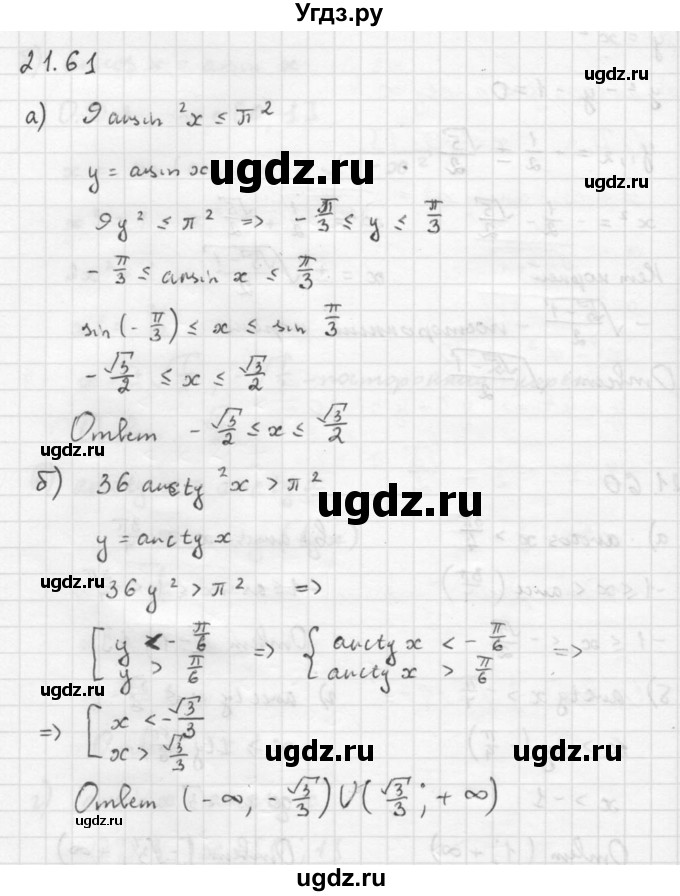 Угдз.ру
21.61
ugdz.ru
а) 9 arcsin ²x ≤ π²
ugdz.ru
y = arcsin x
ugdz.ru
ugdz.ru
9y² ≤ π² => -π/3 ≤ y ≤ π/3
-π/3 ≤ arcsin x ≤ π/3
sin(-π/3) ≤ x ≤ sin π/3
-√3/2 ≤ x ≤ √3/2
ugdz.ru
Ответ -√3/2 ≤ x ≤ √3/2
ugdz.ru
б) 36 arctg ²x > π²
ugdz.ru
y = arctg x
ugdz.ru
ugdz.ru
36 y² > π² =>
[ y < -π/6 => { arctg x < -π/6 =>
y > π/6 arctg x > π/6
ugdz.ru
=> [ x < -√3/3
x > √3/3
ugdz.ru
ugdz.ru
Ответ (-∞; -√3/3) U (√3/3; +∞)
ugdz.ru
ugdz.ru
ugdz.ru